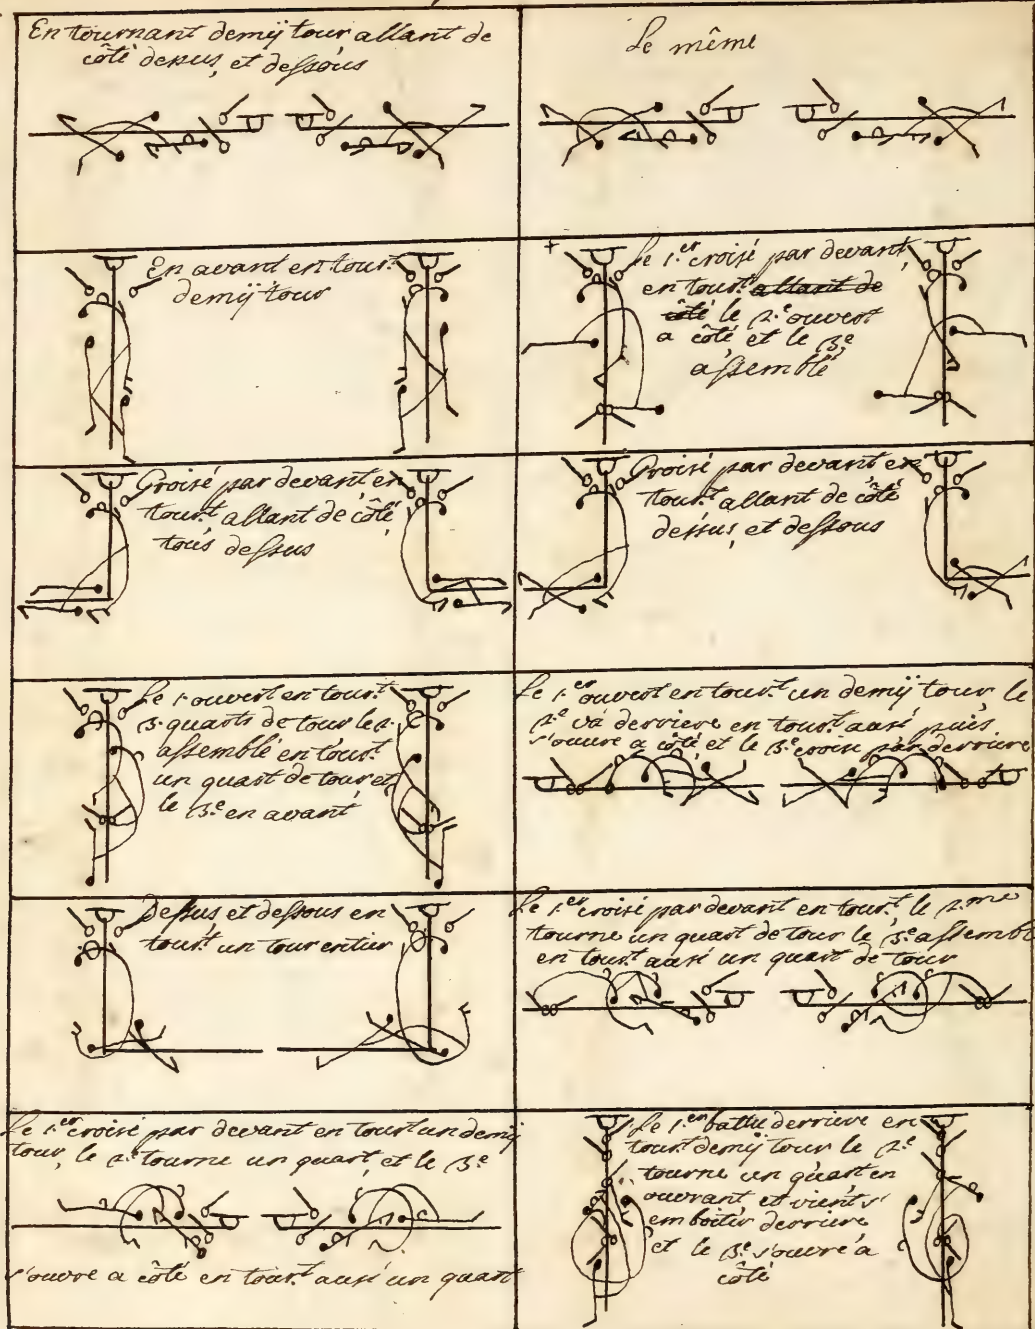 En tournant demÿ tour allant de
côté desus, et dessous
Le même
En avant en tourt.
demÿ tour
+ Le 1.er croisé par devant,
en tourt. allant de
côté le 2.e ouvert
a côté et le 3.e
assemblé
Croisé par devant en
tourt. allant de côté
tous dessus
Croisé par devant en
tourt. allant de côté
dessus, et dessous
Le 1. ouvert en tourt.
3. quarts de tour le 2.
assemblé en tourt.
un quart de tour et
le 3.e en avant
Le 1.er ouvert en tourt. un demÿ tour, le
2.e va derriere en tourt. aussi puis
s'ouvre a côté, et le 3.e croise par derriere
Dessus et dessous en
tourt. un tour entier
Le 1.er croisé par devant en tourt., le 2.me
tourne un quart de tour le 3.e assemb
en tourt. aussi un quart de tour
Le 1.er croisé par devant en tourt. un demÿ
tour, le 2.e tourne un quart, et le 3.e
s'ouvre a côté en tourt. aussi un quart
Le 1.er battu derriere en
tourt. demÿ tour le 2.e
tourne un quart en
ouvrant et vient s'
emboiter derriere
et le 3.e s'ouvre à
côté